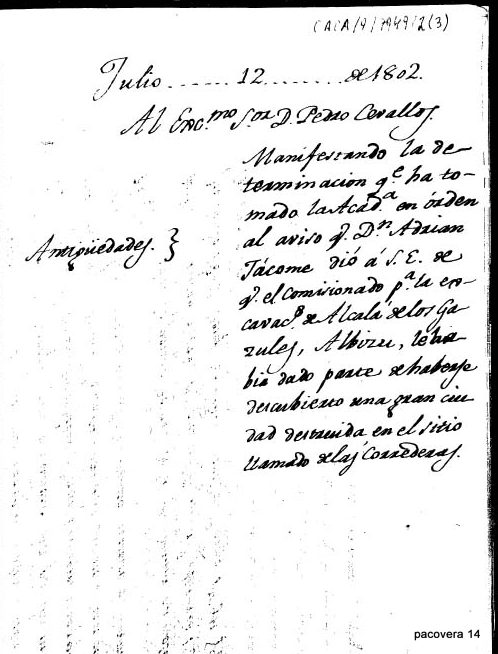 CACA/9/7949/2(3)
Julio ...... 12 ........ de 1802.
Al Exc.mo S.or D. Pedro Cevallos.
Manifestando la de-
terminacion q.e ha to-
mado la Acad.a en órden
Antigüedades. }
al aviso q. D.n Adrian
Jácome dió á S. E. de
q. el Comisionado p.a la ex-
cavac.n de Alcalá de los Ga
zules, Albizu, le ha
bia dado parte de haberse
descubierto una gran ciu
dad destruida en el sitio
llamado de las Correderas.
pacovera 14